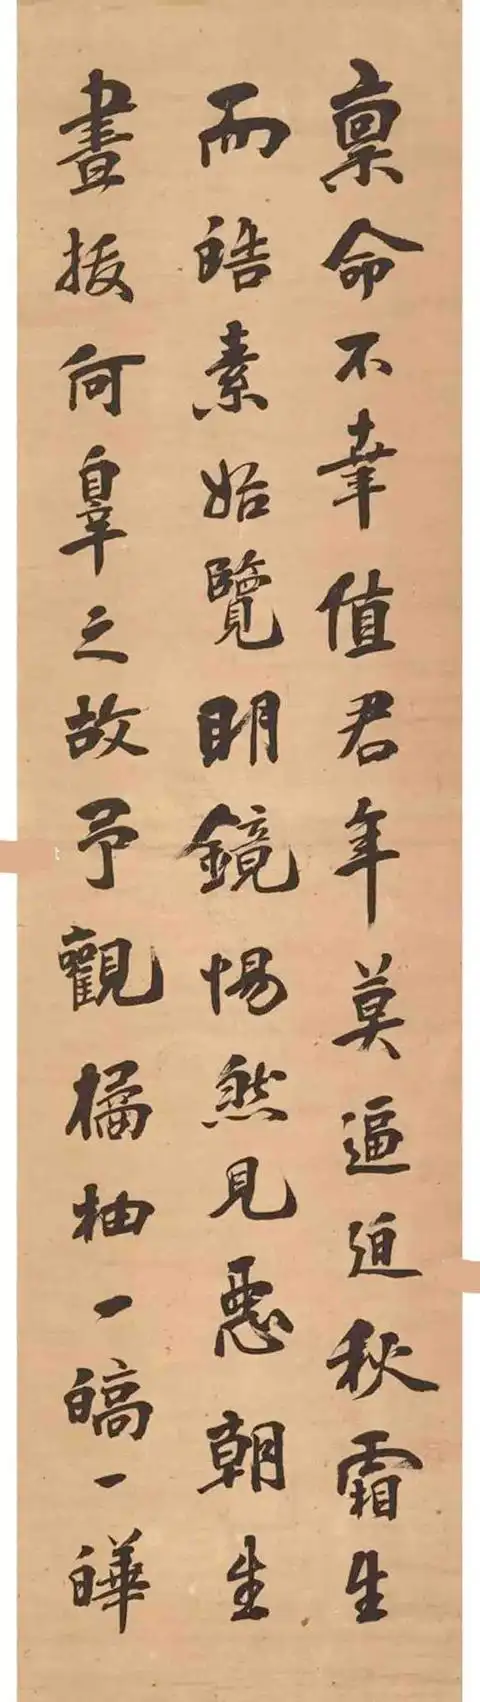 稟命不幸值君年莫逼迫秋霜生
而皓素始覽明鏡惕然見惡朝生
晝拔何辠之故予觀橘柚一皜一曄